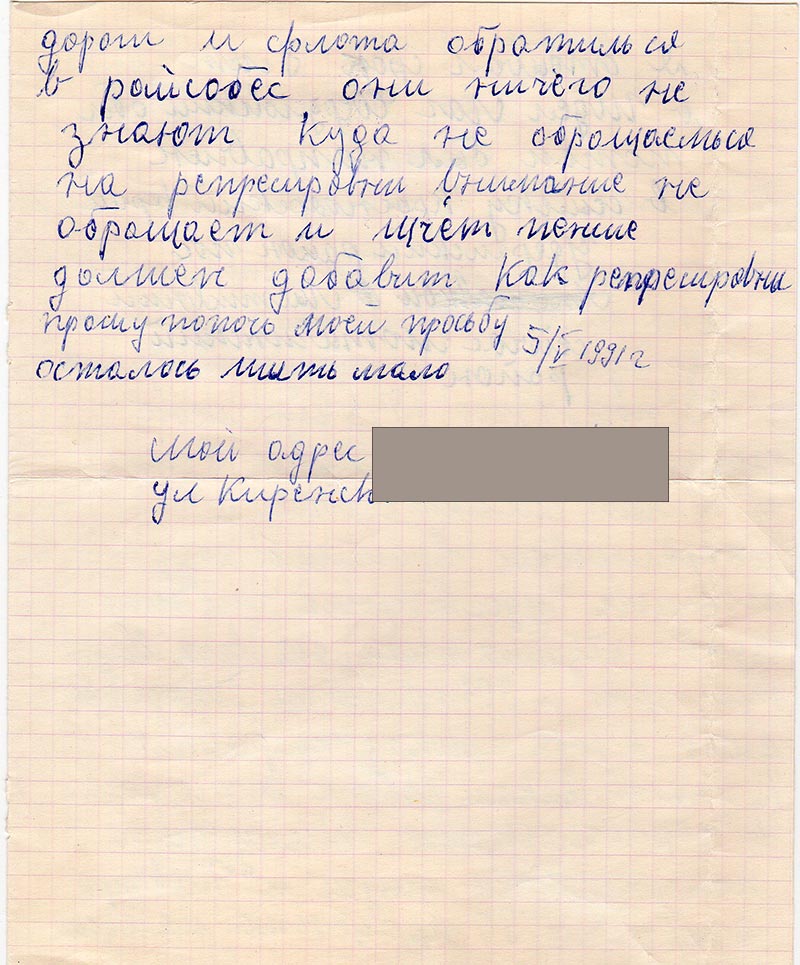 дороги и флота обратилься
в райсобес они ничего не
знают куда не обращаемься
на репресировни внимание не
обращает и щчёт пенсие
должен дабавит как репресировни
прошу попочь моей просьбу 5/V 1991г
осталось жить мало
мой адрес
ул Киренск